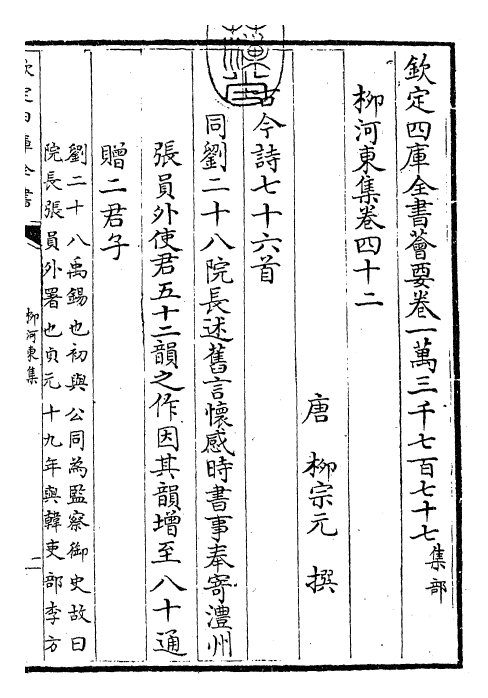 欽定四庫全書薈要卷一萬三千七百七十七集部
柳河東集卷四十二
唐 柳宗元 撰
古今詩七十六首
同劉二十八院長述舊言懷感時書事奉寄澧州
張員外使君五十二韻之作因其韻增至八十通
贈二君子
劉二十八禹錫也初與公同為監察御史故曰
院長張員外署也貞元十九年與韓吏部李方
欽定四庫全書
柳河東集
二